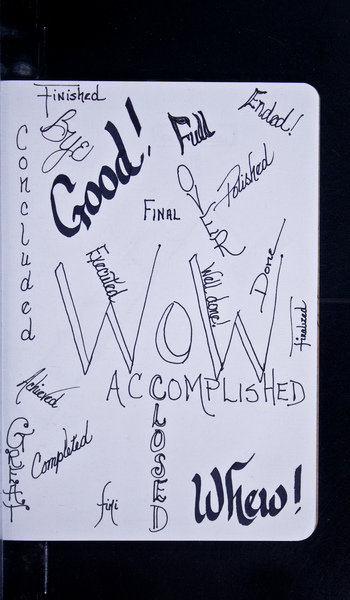 Finished
Bye
Good!
Full
Ended!
Concluded
OVER
Polished
FINAL
Executed
Well done!
Done
WOW
Finalized
ACCOMPLISHED
Achieved
CLOSED
Completed
Great
fini
Whew!